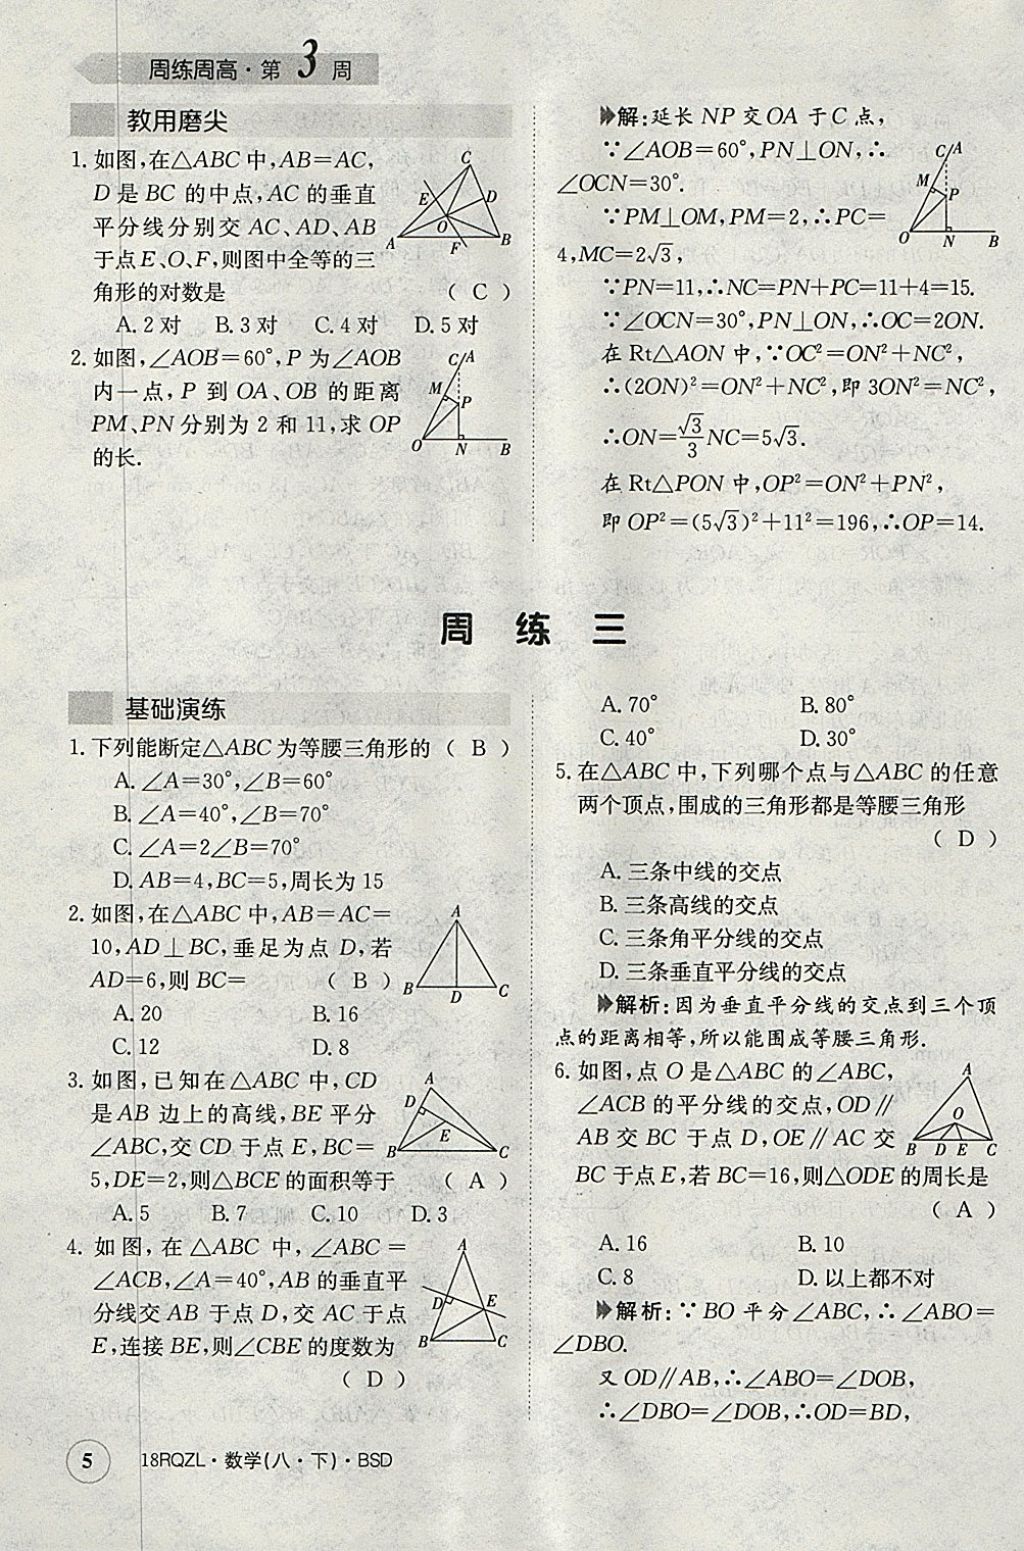 周练周高·第3周
教用磨尖
1. 如图,在△ABC中,AB=AC,
D是BC的中点,AC的垂直
平分线分别交AC、AD、AB
于点E、O、F,则图中全等的三
角形的对数是 ( C )
A. 2对 B. 3对 C. 4对 D. 5对
C
E
D
O
A
F
B
2. 如图,∠AOB=60°,P为∠AOB
内一点,P到OA、OB的距离
PM、PN分别为2和11,求OP
的长.
C A
M
P
O N B
解:延长NP交OA于C点,
∵∠AOB=60°,PN⊥ON,∴
∠OCN=30°.
∵PM⊥OM,PM=2,∴PC=
4,MC=2√3,
C A
M
P
O N B
∵PN=11,∴NC=PN+PC=11+4=15.
∵∠OCN=30°,PN⊥ON,∴OC=2ON.
在Rt△AON中,∵OC²=ON²+NC²,
∴(2ON)²=ON²+NC²,即3ON²=NC²,
∴ON=√3/3NC=5√3.
在Rt△PON中,OP²=ON²+PN²,
即OP²=(5√3)²+11²=196,∴OP=14.
周 练 三
基础演练
1. 下列能断定△ABC为等腰三角形的 ( B )
A. ∠A=30°,∠B=60°
B. ∠A=40°,∠B=70°
C. ∠A=2∠B=70°
D. AB=4,BC=5,周长为15
2. 如图,在△ABC中,AB=AC=
10,AD⊥BC,垂足为点D,若
AD=6,则BC= ( B )
A. 20 B. 16
C. 12 D. 8
A
B D C
3. 如图,已知在△ABC中,CD
是AB边上的高线,BE平分
∠ABC,交CD于点E,BC=
5,DE=2,则△BCE的面积等于 ( A )
A. 5 B. 7 C. 10 D. 3
A
D
E
B C
4. 如图,在△ABC中,∠ABC=
∠ACB,∠A=40°,AB的垂直平
分线交AB于点D,交AC于点
E,连接BE,则∠CBE的度数为
( D )
A
D E
B C
A. 70° B. 80°
C. 40° D. 30°
5. 在△ABC中,下列哪个点与△ABC的任意
两个顶点,围成的三角形都是等腰三角形
( D )
A. 三条中线的交点
B. 三条高线的交点
C. 三条角平分线的交点
D. 三条垂直平分线的交点
解析:因为垂直平分线的交点到三个顶
点的距离相等,所以能围成等腰三角形.
6. 如图,点O是△ABC的∠ABC,
∠ACB的平分线的交点,OD∥
AB交BC于点D,OE∥AC交
BC于点E,若BC=16,则△ODE的周长是
( A )
A
O
B D E C
A. 16 B. 10
C. 8 D. 以上都不对
解析:∵BO平分∠ABC,∴∠ABO=
∠DBO.
又OD∥AB,∴∠ABO=∠DOB,
∴∠DBO=∠DOB,∴OD=BD,
5 18RQZL·数学(八·下)·BSD